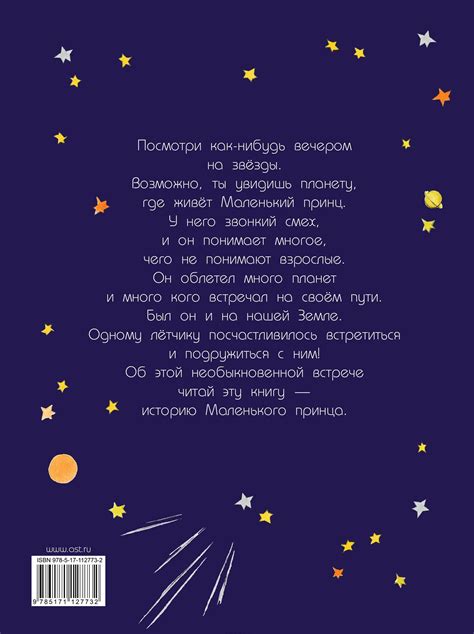 Посмотри как-нибудь вечером
на звёзды.
Возможно, ты увидишь планету,
где живёт Маленький принц.
У него звонкий смех,
и он понимает многое,
чего не понимают взрослые.
Он облетел много планет
и много кого встречал на своём пути.
Был он и на нашей Земле.
Одному лётчику посчастливилось встретиться
и подружиться с ним!
Об этой необыкновенной встрече
читай эту книгу —
историю Маленького принца.
www.ast.ru
ISBN 978-5-17-112773-2
9 785171 127732